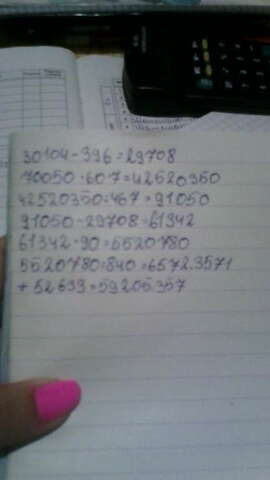 30104-396=29708
70050·607=42520350
42520350:467=91050
91050-29708=61342
61342·90=5520780
5520780:840=6572.3571
+52633=59205357